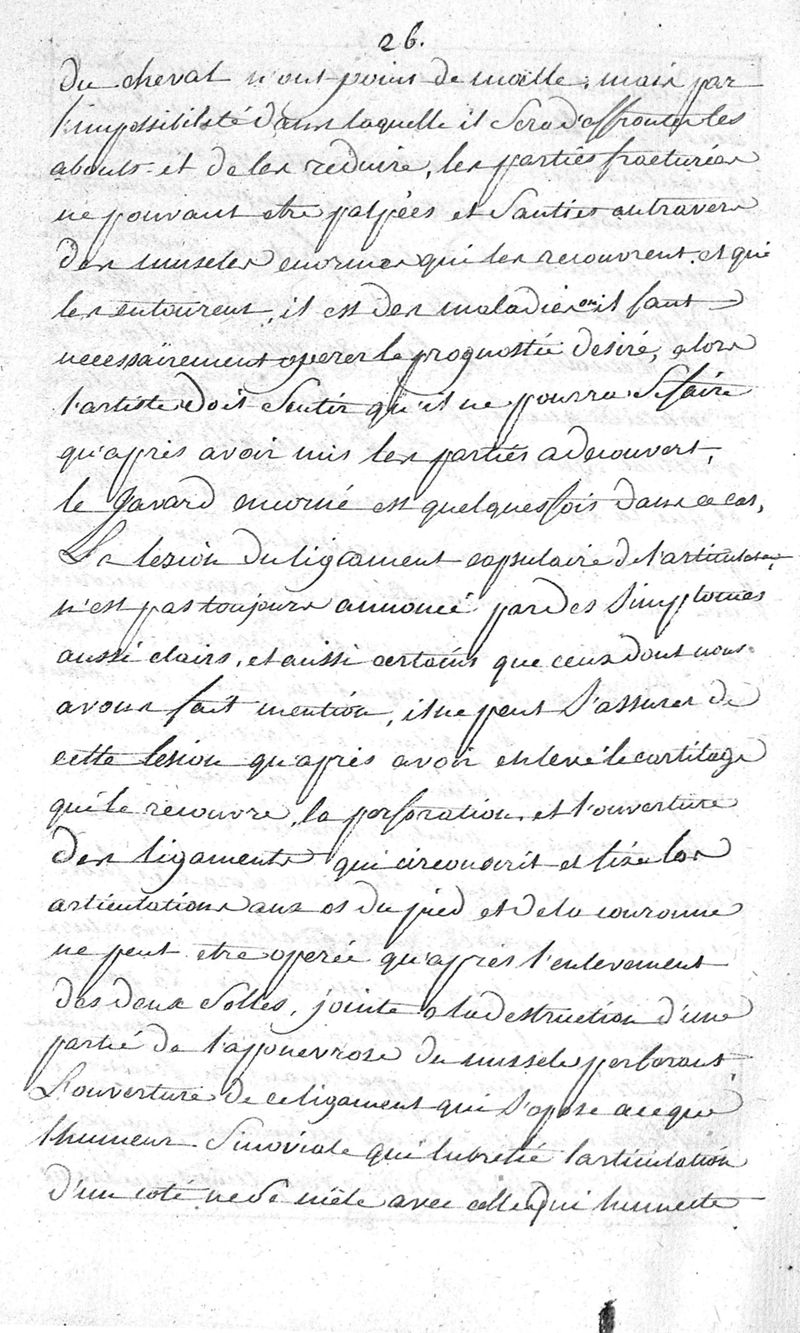 26.
du cheval n'ont point de moëlle; mais par
l'impossibileté dans laquelle il sera d'affronter les
abouts et de les reduire, les parties fracturées
ne pouvant etre palpées et senties autravers
des muscles enormes qui les recouvrent et qui
les entourent, il est des maladies ou il faut
necessairement operer le prognostic desiré, alors
l'artiste doit sentir qu'il ne pourra se faire
qu'après avoir mis les parties adecouvert,
le Javard encorné est quelques fois dans ce cas,
La lezion du ligament capsulaire de l'articulation
n'est pas toujours annoncé par des simptomes
aussi clairs, et aussi certains que ceux dont nous
avons fait mention, il ne peut s'assurer de
cette lesion qu'après avoir enlevé le cartilage
qui le recouvre, la perforation et l'ouverture
des ligaments qui circonscrit et fixe les
articulations aux os du pied et de la couronne
ne peut etre operée qu'après l'enlevement
des deux solles, jointe a la destruction d'une
partie de l'aponevrose du muscle perforant
L'ouverture de ce ligament qui s'opose a ce que
l'humeur sinoviale qui lubrefie l'articulation
d'un coté ne se mêle avec celle qui humecte